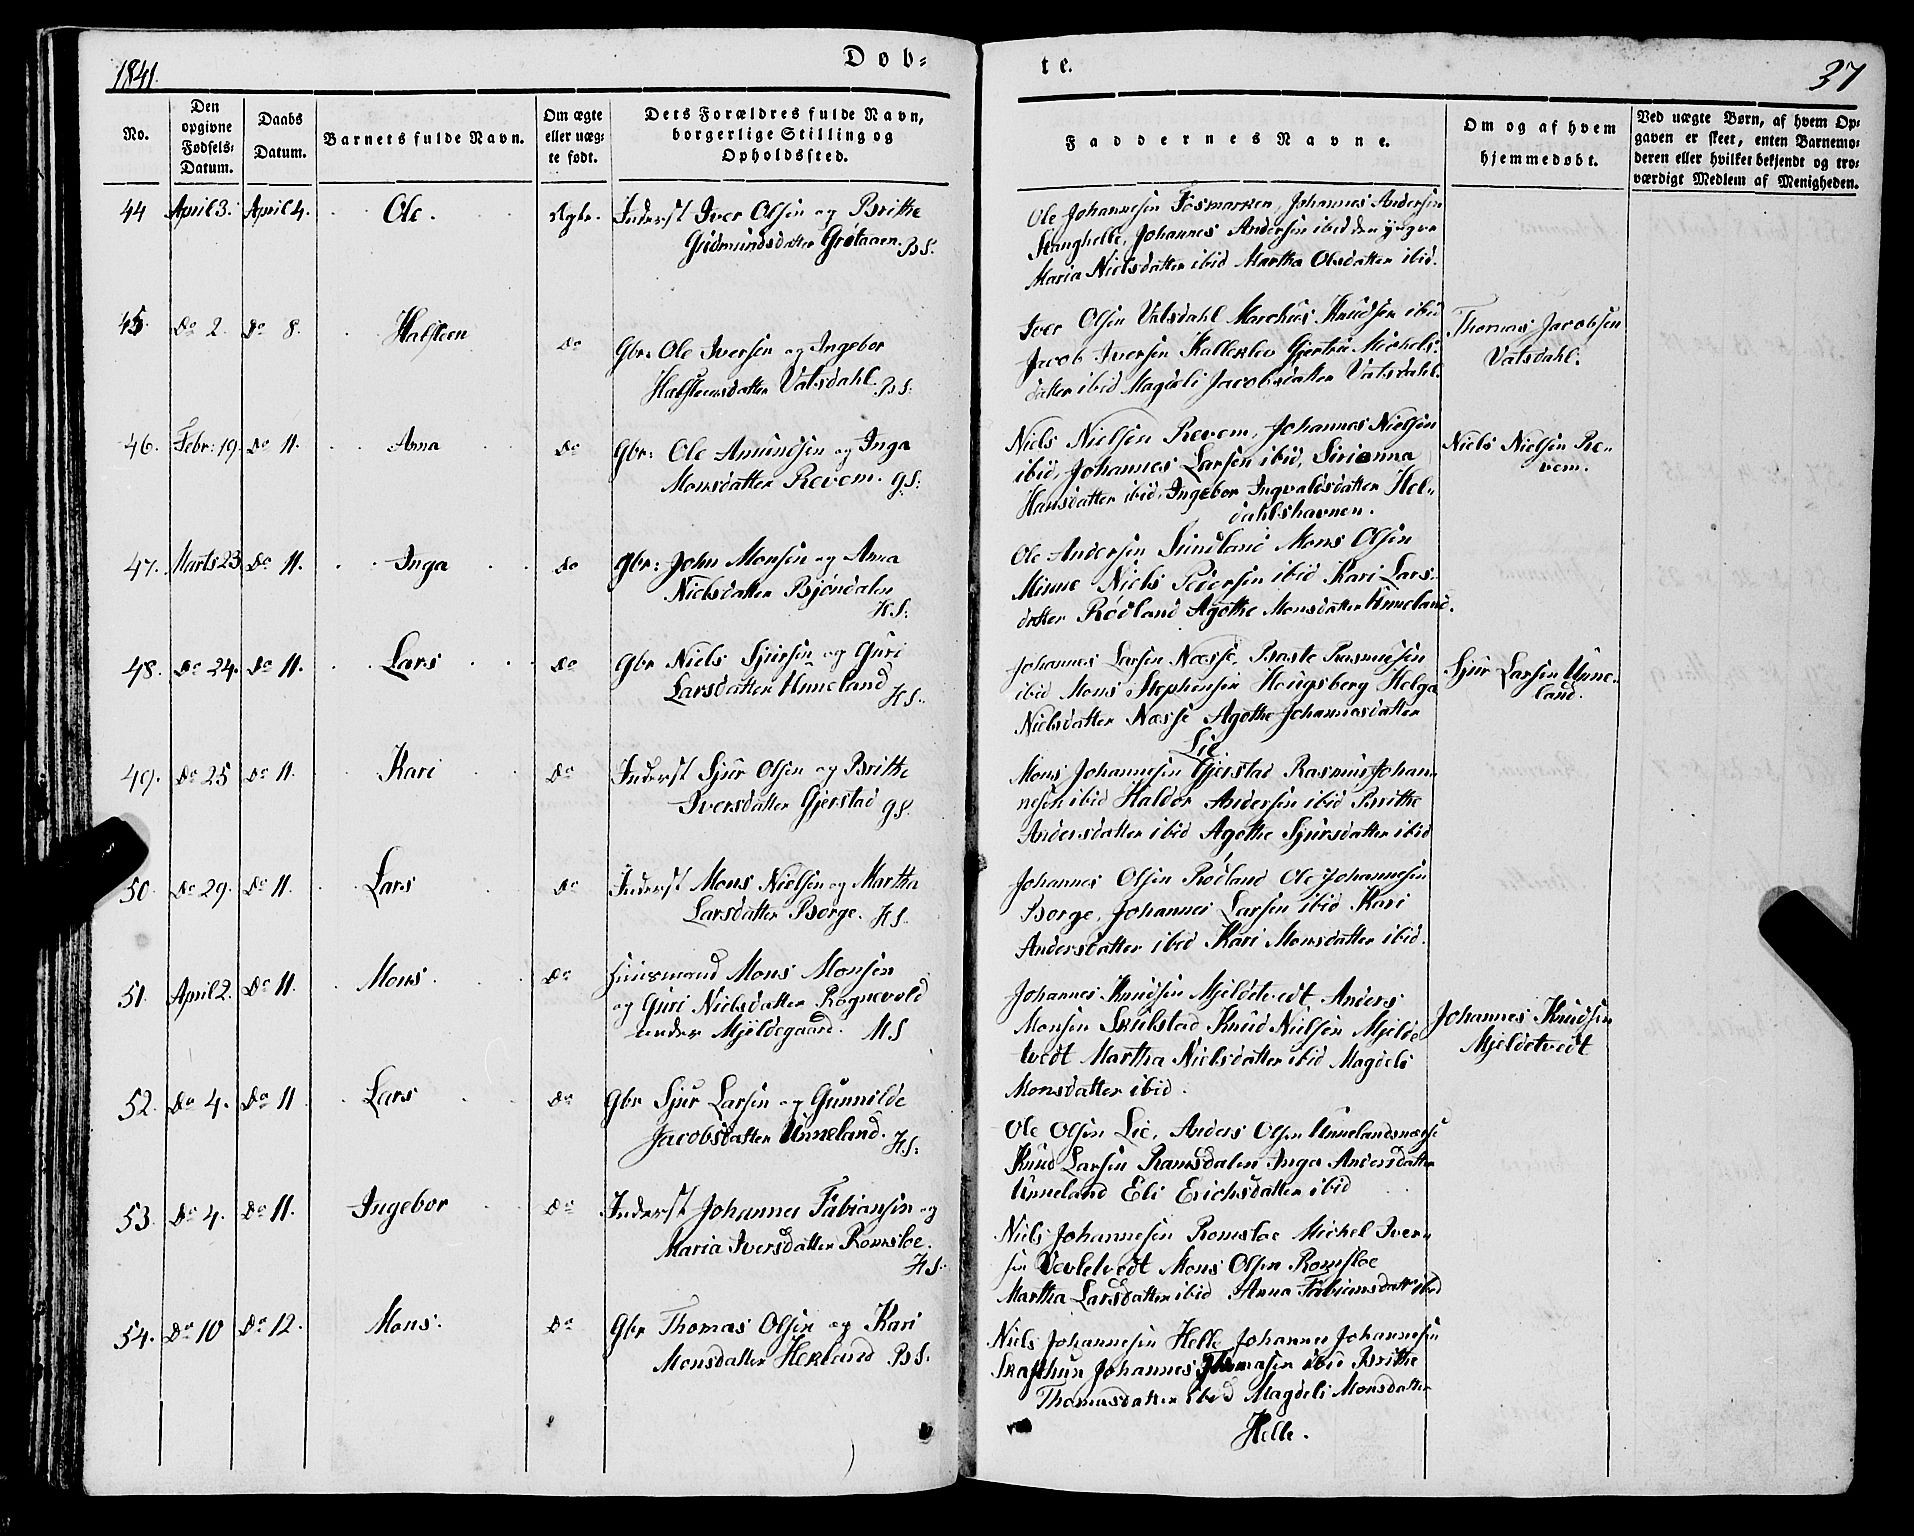 1841.
Dob-
te.
37
No.
Den opgivne Fødsels-Datum.
Daabs Datum.
Barnets fulde Navn.
Om ægte eller uæg-te født.
Dets Forældres fulde Navn, borgerlige Stilling og Opholdssted.
Faddernes Navne.
Om og af hvem hjemmedøbt.
Ved uægte Børn, af hvem Op-gaven er skeet, enten Barnemo-deren eller hvilket bekjendt og tro-værdigt Medlem af Menigheden.
44 April 3. April 4. Ole. Ægte. Inderst Iver Olsen og Brithe
Gudmundsdatter Grøtaaen. BS.
Ole Johannesen Fosmarken, Johannes Andersen
Stanghelle, Johannes Andersen ibid den yngre
Maria Nielsdatter ibid Martha Olsdatter ibid.
45. Do 2. Do 8. Halsteen Do
Gbr. Ole Iversen og Ingebor
Halsteensdatter Vatsdahl. BS.
Iver Olsen Vatsdahl Marchus Knudsen ibid
Jacob Iversen Kalleklev Gjertrü Michels-
datter ibid Magdeli Jacobsdatter Vatsdahl.
Thomas Jacobsen
Vatsdahl.
46. Febr: 19. Do 11. Anna Do Gbr: Ole Amundsen og Inga
Monsdatter Revem. GS:
Niels Nielsen Revem, Johannes Nielsen
ibid, Johannes Larsen ibid, Sirianna
Hansdatter ibid, Ingebor Ingvaldsdatter Hel-
dahlshavnen.
Niels Nielsen Re-
vem.
47. Marts 23 Do 11. Inga Do Gbr: John Monsen og Anna
Nielsdatter Bjøndalen
HS:
Ole Andersen Sundland Mons Olsen
Minne Niels Pedersen ibid Kari Lars-
datter Rødland Agothe Monsdatter Unneland.
48. Do 24. Do 11. Lars Do Gbr Niels Sjursen og Guri
Larsdatter Unneland HS.
Johannes Larsen Næsse, Baste Rasmusen
ibid Mons Stephensen Hougsberg Helga
Nielsdatter Næsse Agothe Johannesdatter
Lie
Sjur Larsen Unne-
land.
49. Do 25 Do 11. Kari Do Inderst Sjur Olsen og Brithe
Iversdatter Gjerstad GS.
Mons Johannesen Gjerstad Rasmus Johan-
nesen ibid Haldor Andersen ibid Brithe
Andersdatter ibid Agothe Sjursdatter ibid
50. Do 29. Do 11. Lars Do Inderst Mons Nielsen og Martha
Larsdatter Borge. HS.
Johannes Olsen Rødland Ole Johannesen
Borge, Johannes Larsen ibid Kari
Andersdatter ibid Kari Monsdatter ibid.
51. April 2. Do 11. Mons. Do Huusmand Mons Monsen
og Guri Nielsdatter Rognevold
under Mjeldegaard. MS
Johannes Knudsen Mjeldetvedt, Anders
Monsen Knud Nielsen Mjelde
tvedt Martha Nielsdatter ibid Magdeli
Monsdatter ibid.
Johannes Knudsen
Mjeldetvedt
52. Do 4. Do 11. Lars Do Gbr Sjur Larsen og Gunnilde
Jacobsdatter Unneland. HS:
Ole Olsen Lie, Anders Olsen Unnelandsnæsse
Knud Larsen Ramsdalen Inga Andersdatter
Unneland Eli Erichsdatter ibid
53. Do 4. Do 11. Ingebor Do Inderst Johannes Fabiansen og
Maria Iversdatter Romsloe.
HS.
Niels Johannesen Romsloe Michel Iver-
sen Vevletvedt Mons Olsen Romsloe
Martha Larsdatter ibid Anna Fabiansdatt ibid
54. Do 10 Do 12. Mons. Do Gbr Thomas Olsen og Kari
Monsdatter Herland BS.
Niels Johannesen Helle Johannes Johannesen
Skafthun Johannes Thomasen ibid Brithe
Thomasdatter ibid Magdeli Monsdatter
Helle.